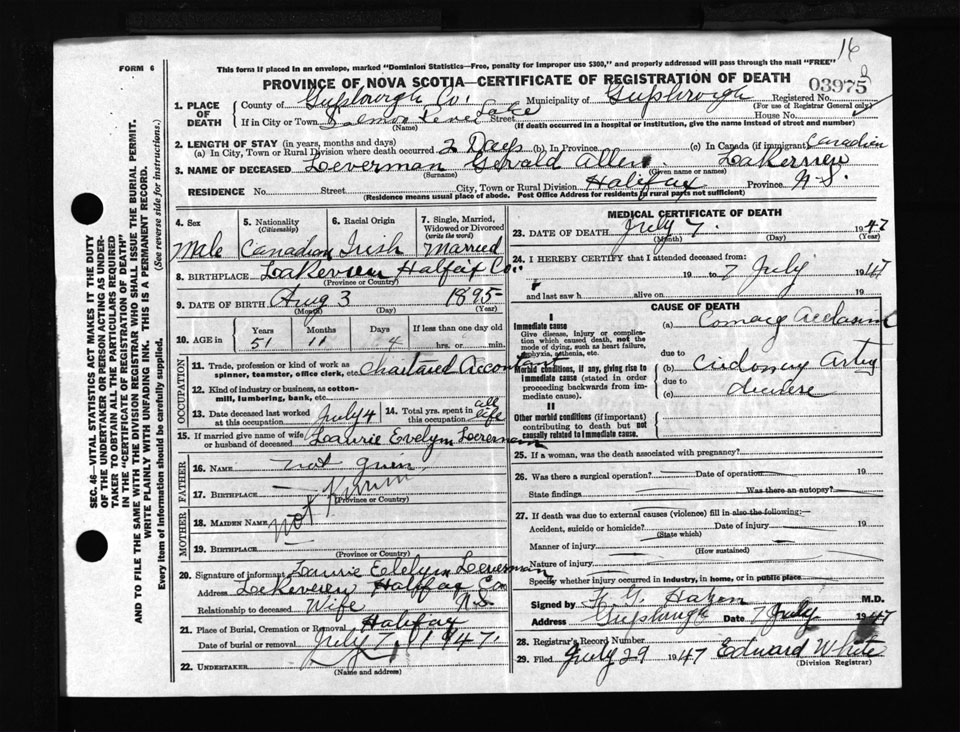 16
FORM 6
This form if placed in an envelope, marked "Dominion Statistics—Free, penalty for improper use $300," and properly addressed will pass through the mail "FREE"
PROVINCE OF NOVA SCOTIA—CERTIFICATE OF REGISTRATION OF DEATH
03975
SEC. 46—VITAL STATISTICS ACT MAKES IT THE DUTY OF THE UNDERTAKER OR PERSON ACTING AS UNDERTAKER TO OBTAIN ALL THE PARTICULARS REQUIRED IN THE "CERTIFICATE OF REGISTRATION OF DEATH"
AND TO FILE THE SAME WITH THE DIVISION REGISTRAR WHO SHALL ISSUE THE BURIAL PERMIT.
WRITE PLAINLY WITH UNFADING INK. THIS IS A PERMANENT RECORD.
Every item of information should be carefully supplied. (See reverse side for instructions.)
1. PLACE OF DEATH County of Guysborough Co. Municipality of Guysborough Registered No.
(For use of Registrar General only)
If in City or Town Salmon River Lake Street House No.
(Name) (If death occurred in a hospital or institution, give the name instead of street and number)
2. LENGTH OF STAY (in years, months and days)
(a) In City, Town or Rural Division where death occurred 2 Days (b) In Province (c) In Canada (if immigrant) Canadian
3. NAME OF DECEASED Loeverman Gerald Allen Lakeview
(Surname) (Given name or names)
RESIDENCE No. Street City, Town or Rural Division Halifax Province N.S.
(Residence means usual place of abode. Post Office Address for residents in rural parts not sufficient)
4. Sex Male
5. Nationality (Citizenship) Canadian
6. Racial Origin Irish
7. Single, Married, Widowed or Divorced (write the word) Married
8. BIRTHPLACE Lakeview Halfaix Co.
(Province or Country)
9. DATE OF BIRTH Aug 3 1895
(Month) (Day) (Year)
10. AGE in Years Months Days If less than one day old
51 11 4 hrs. or min.
OCCUPATION
11. Trade, profession or kind of work as spinner, teamster, office clerk, etc. Chartared Accontant
12. Kind of industry or business, as cotton-mill, lumbering, bank, etc.
13. Date deceased last worked at this occupation July 4
14. Total yrs. spent in this occupation all life
15. If married give name of wife or husband of deceased Laurie Evelyn Loereman
FATHER
16. NAME not given
17. BIRTHPLACE
(Province or Country)
MOTHER
18. MAIDEN NAME not Known
19. BIRTHPLACE
(Province or Country)
20. Signature of informant Laurie Evelyn Loeverman
Address Lakeview Halifax Co. N.S.
Relationship to deceased Wife
21. Place of Burial, Cremation or Removal Halifax
Date of burial or removal July 7, 1947.
22. UNDERTAKER
(Name and address)
MEDICAL CERTIFICATE OF DEATH
23. DATE OF DEATH July 7. 1947
(Month) (Day) (Year)
24. I HEREBY CERTIFY that I attended deceased from:
19 to 7 July 1947
and last saw h alive on 19
CAUSE OF DEATH
I
Immediate cause
Give disease, injury or complication which caused death, not the mode of dying, such as heart failure, asphyxia, asthenia, etc.
(a) Coronary
due to
Morbid conditions, if any, giving rise to immediate cause (stated in order proceeding backwards from immediate cause).
(b) Artery
due to
(c) disease
II
Other morbid conditions (if important) contributing to death but not causally related to immediate cause.
25. If a woman, was the death associated with pregnancy?
26. Was there a surgical operation? Date of operation 19
State findings Was there an autopsy?
27. If death was due to external causes (violence) fill in also the following:
Accident, suicide or homicide? Date of injury 19
(State which)
Manner of injury
(How sustained)
Nature of injury
Specify whether injury occurred in industry, in home, or in public place
Signed by Hazen M.D.
Address Date 7 July 1947
28. Registrar's Record Number
29. Filed July 29 1947 Edward White
(Division Registrar)